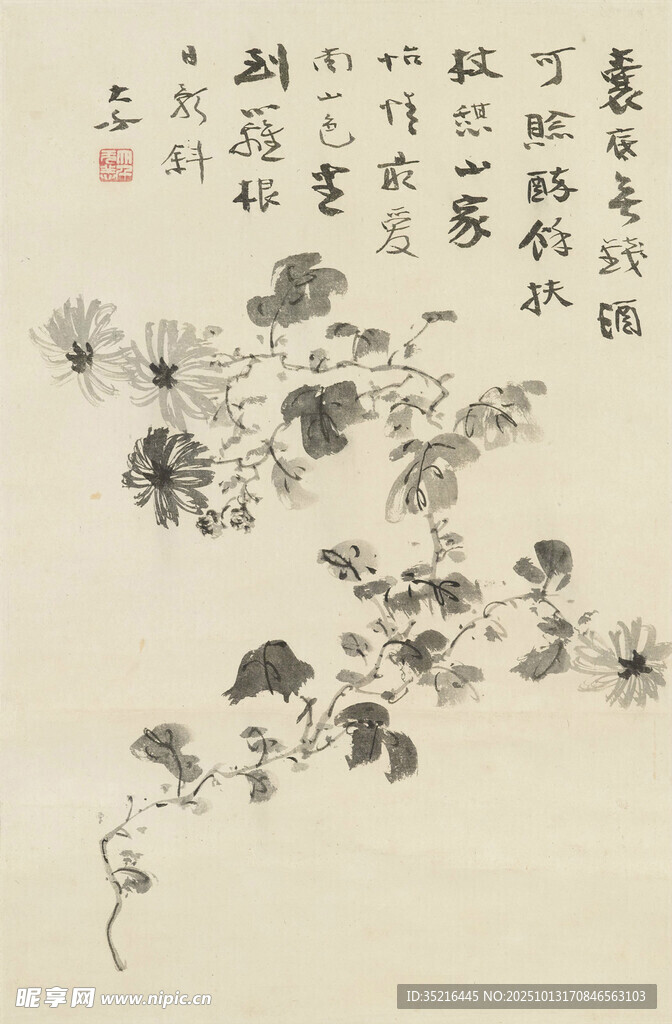 囊底無錢酒
可賒醉餘扶
杖憩山家
怡情最愛
南山色坐
到籬根
日影斜
大千
昵享网 www.nipic.cn
ID:35216445 NO:20251013170846563103